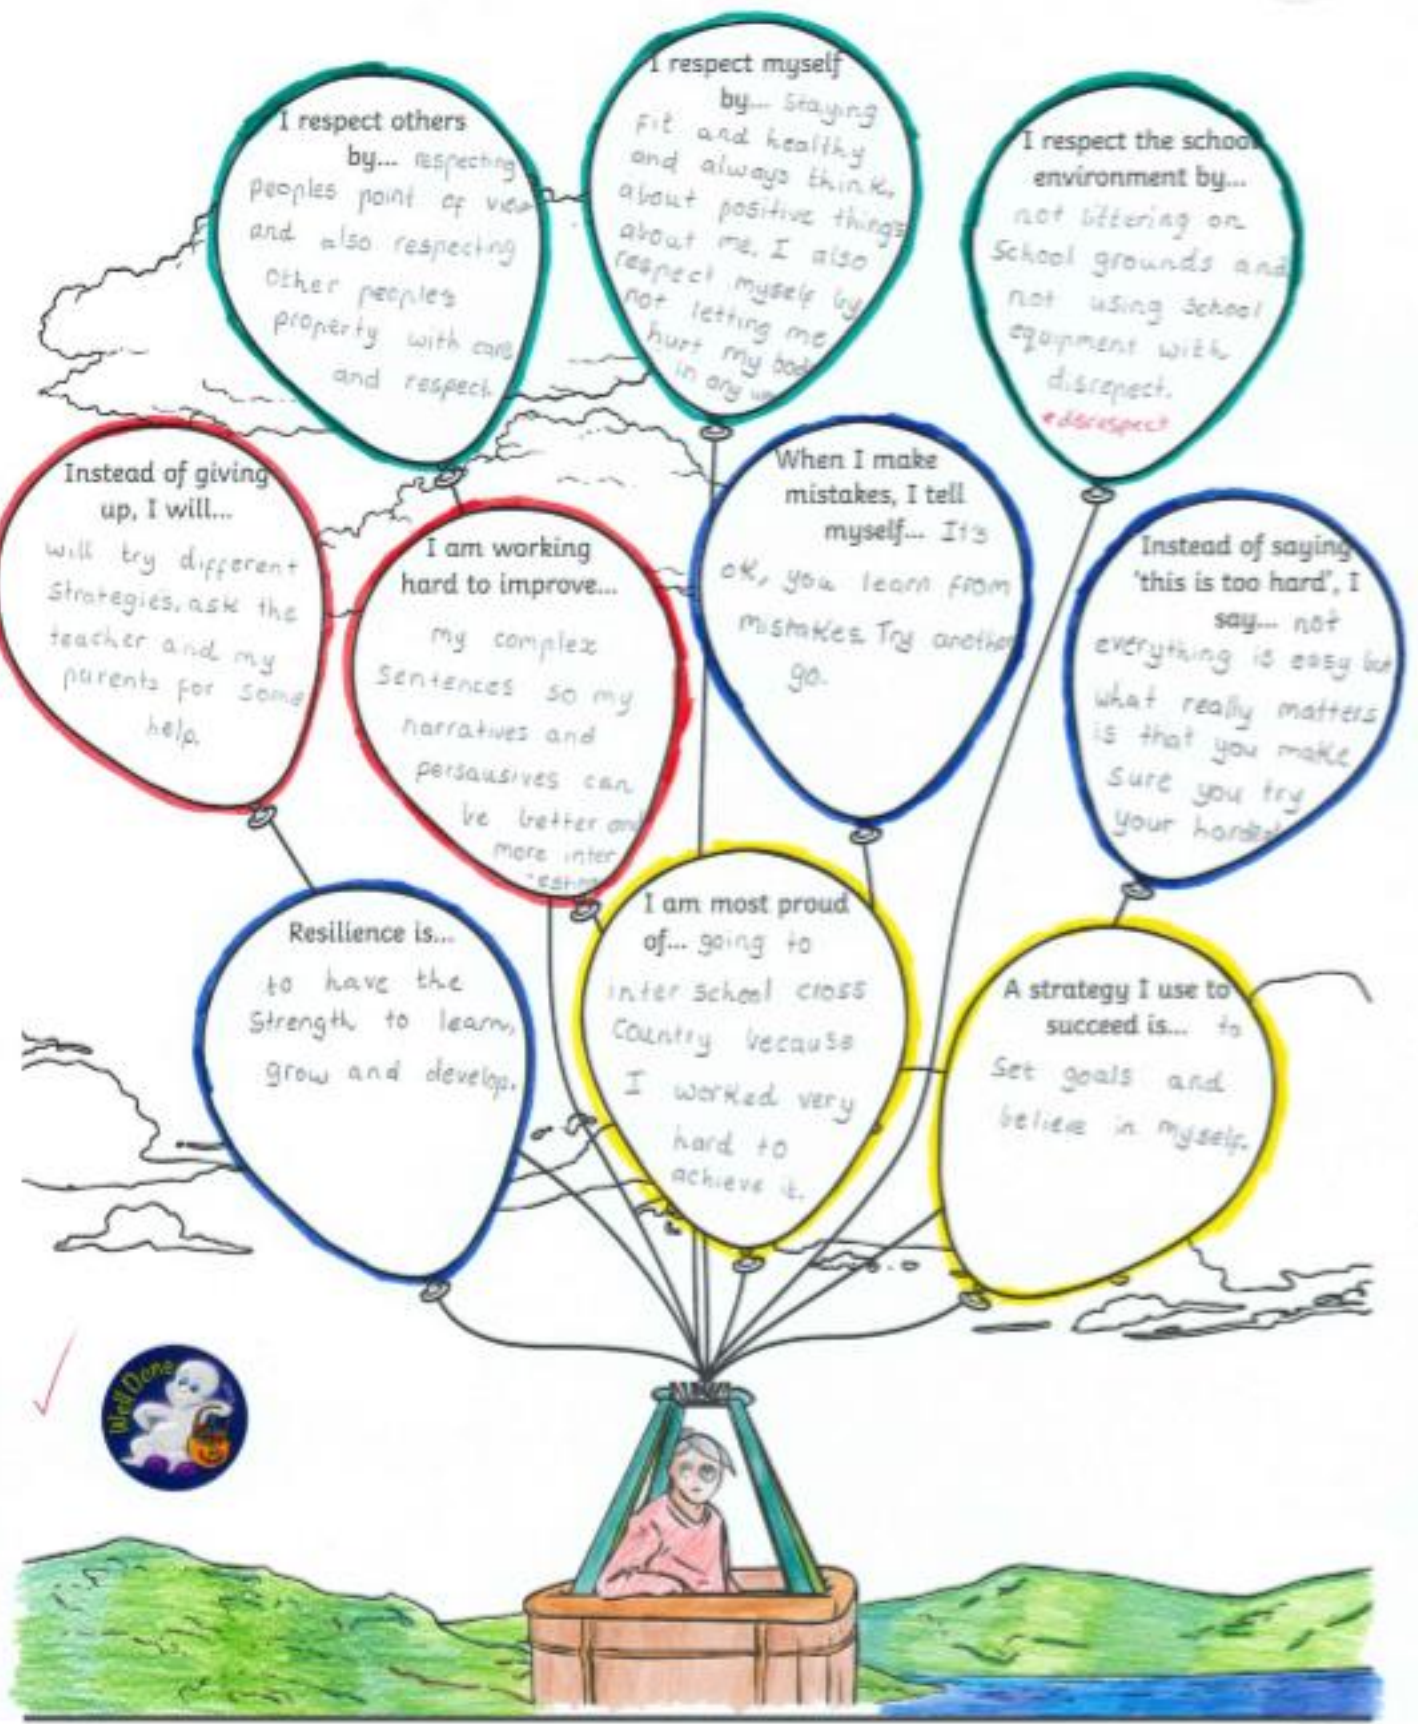 I respect others
by... respecting
peoples point of view
and also respecting
other people's
property with care
and respect.
I respect myself
by... staying
fit and healthy
and always think,
about positive things
about me. I also
respect myself by
not letting me
hurt my body
in any
I respect the school
environment by...
not littering on
school grounds and
not using school
equipment with
disrepect.
disrespect
Instead of giving
up, I will...
will try different
strategies, ask the
teacher and my
parents for some
help.
I am working
hard to improve...
my complex
sentences so my
narratives and
persausives can
be better and
more inter
esting
When I make
mistakes, I tell
myself... It's
ok, you learn from
mistakes. Try another
go.
Instead of saying
'this is too hard', I
say... not
everything is easy but
what really matters
is that you make
sure you try
your hardest
Resilience is...
to have the
strength to learn,
grow and develop.
I am most proud
of... going to
inter school cross
country because
I worked very
hard to
achieve it.
A strategy I use to
succeed is... to
set goals and
believe in myself.
Well Done